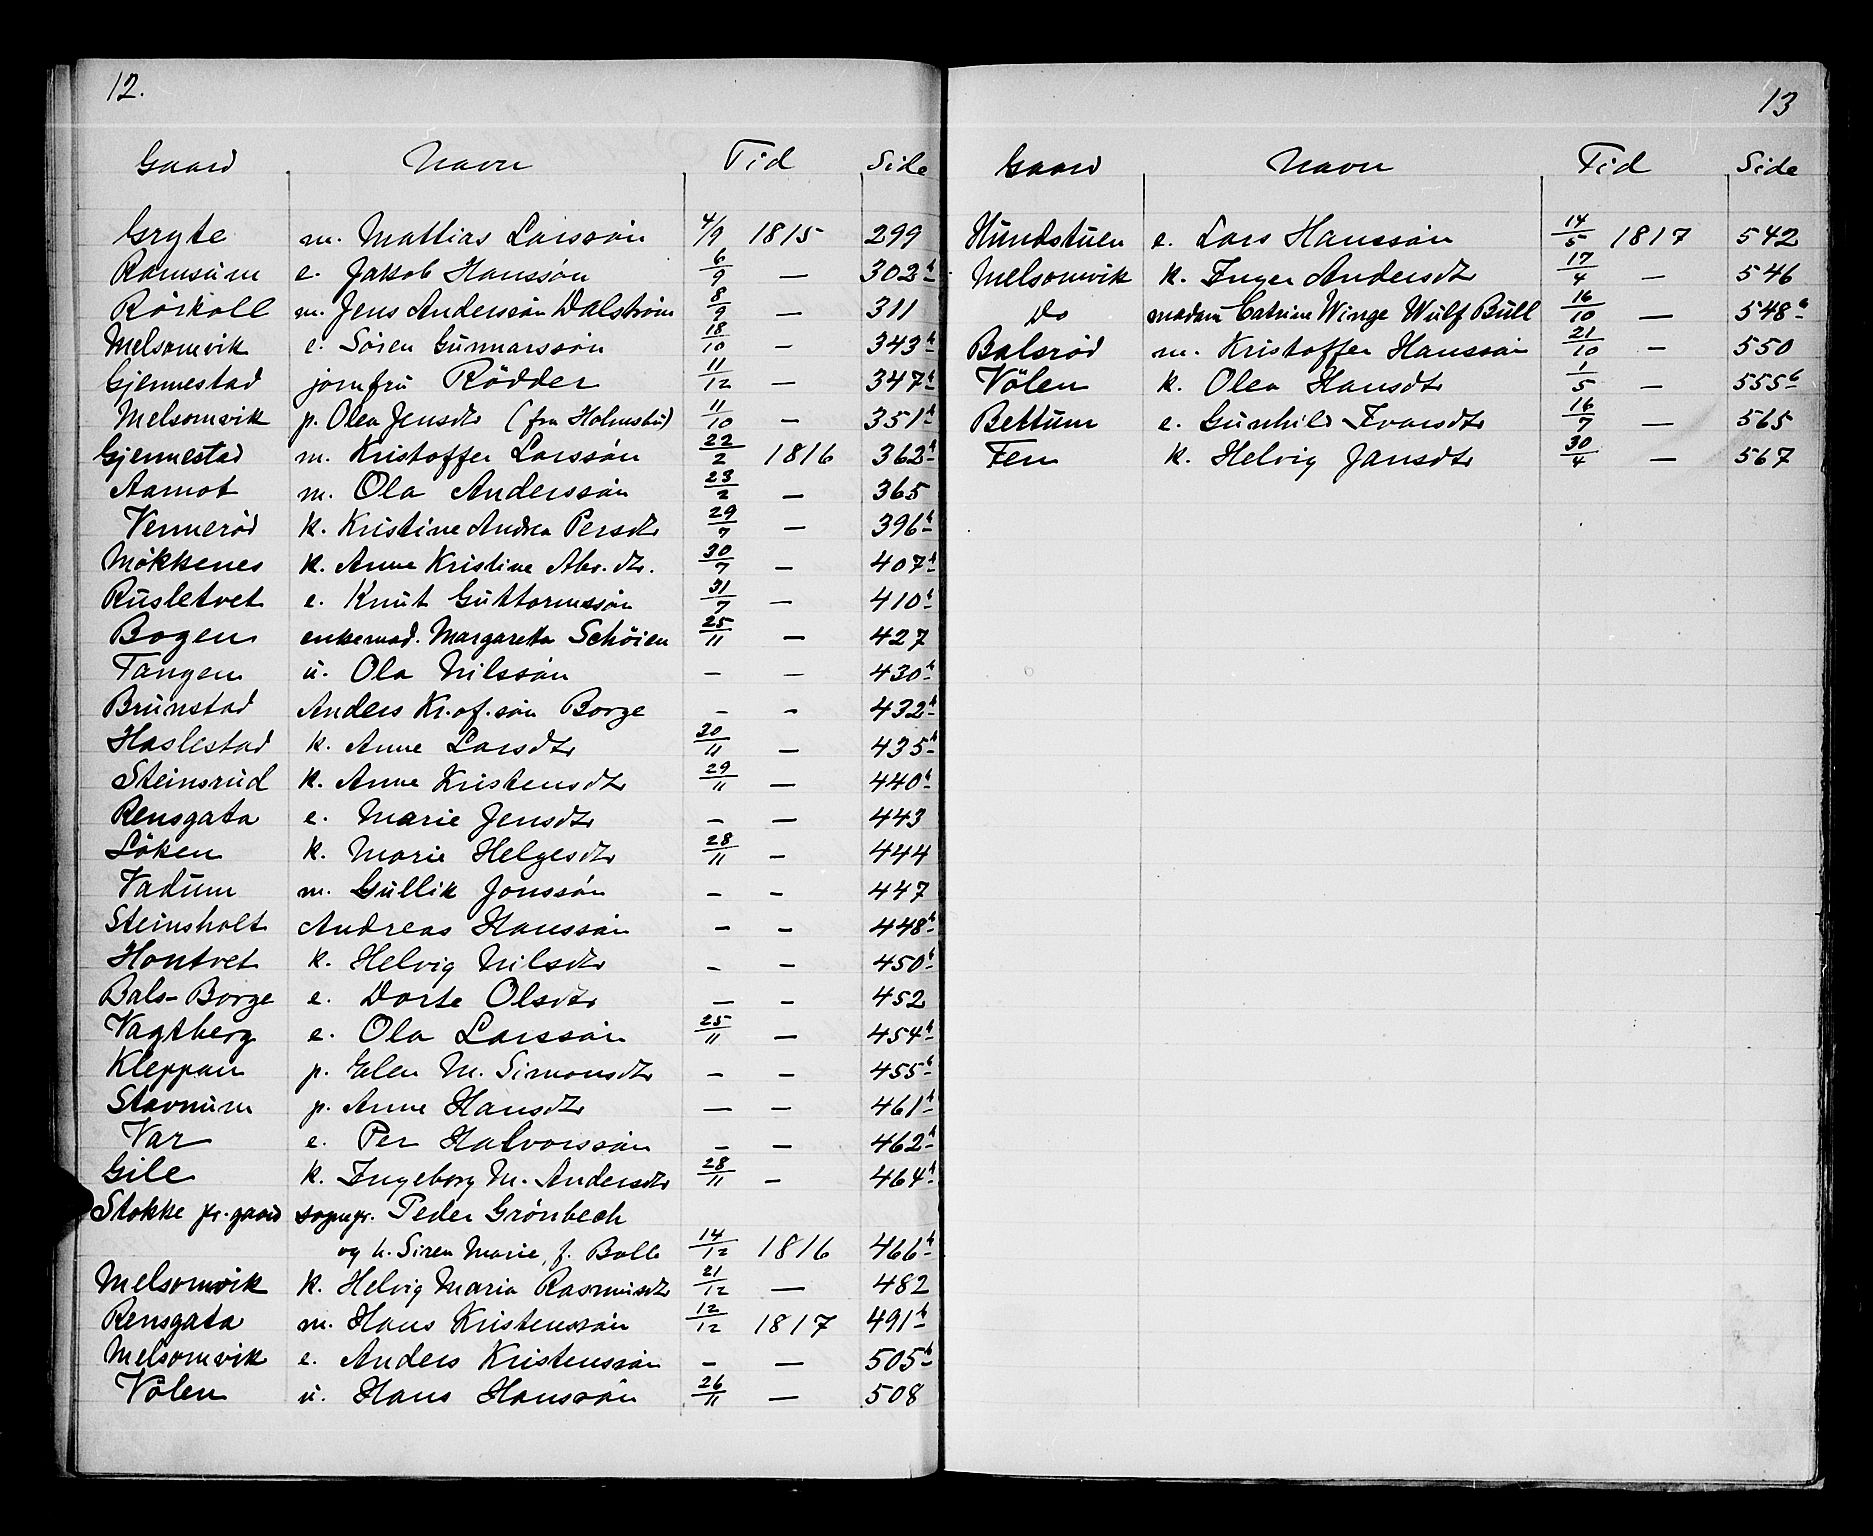 12.
Gaard Navn Tid Side
Gryte m. Mattias Larssøn 4/9 1815 299
Ramsum e. Jakob Hanssøn 6/9 — 302b
Röskoll m. Jens Anderssøn Dalstrøm 8/9 — 311
Melsomvik e. Sören Gunnarssøn 18/10 — 343b
Gjennestad jomfru Rödder 11/12 — 347b
Melsomvik p. Olea Jensdtr (fra Holmsbu) 11/10 — 351b
Gjennestad m. Kristoffer Larssøn 22/2 1816 362b
Aamot m. Ola Anderssøn 23/2 — 365
Vennerød k. Kristine Andrea Persdtr 29/7 — 396b
Mökkenes k. Anne Kristine Abr.dtr. 30/7 — 407b
Rusletvet e. Knut Guttormssøn 31/7 — 410b
Bogen enkemad. Margareta Schöien 25/11 — 427
Tangen u. Ola Nilssøn — — 430b
Brunstad Anders Kr.of.søn Borge — — 432b
Haslestad k. Anne Larsdtr 30/11 — 435b
Steinsrud k. Anne Kristensdtr 29/11 — 440b
Rensgata e. Marie Jensdtr — — 443
Löken k. Marie Helgesdtr 28/11 — 444
Vadum m. Gullik Jonssøn — — 447
Steinsholt Andreas Hanssøn — — 448b
Hontvet k. Helvig Nilsdtr — — 450b
Bals-Borge e. Dorte Olsdtr — — 452
Vagtberg e. Ola Larssøn 25/11 — 454b
Kleppan p. Elen M. Simonsdtr — — 455b
Stavnum p. Anne Hansdtr — — 461b
Var e. Per Halvorssøn — — 462b
Gile k. Ingeborg M. Andersdtr 28/11 — 464b
Stokke pr.gaard sognepr. Peder Grönbech
og h. Siren Marie, f. Bolle 14/12 1816 466b
Melsomvik k. Helvig Maria Rasmusdtr 21/12 — 482
Rensgata m. Hans Kristenssøn 12/12 1817 491b
Melsomvik e. Anders Kristenssøn — — 505b
Völen u. Hans Hanssøn 26/11 — 508
13
Gaard Navn Tid Side
Hundstuen e. Lars Hanssøn 14/5 1817 542
Melsomvik k. Inger Andersdtr 17/4 — 546
Do madam Catrine Winge Wulf Bull 16/10 — 548b
Balsrød m. Kristoffer Hanssøn 21/10 — 550
Völen k. Olea Hansdtr 1/5 — 555b
Bettum e. Gunhild Ivarsdtr 16/7 — 565
Fen k. Helvig Jansdtr 30/4 — 567